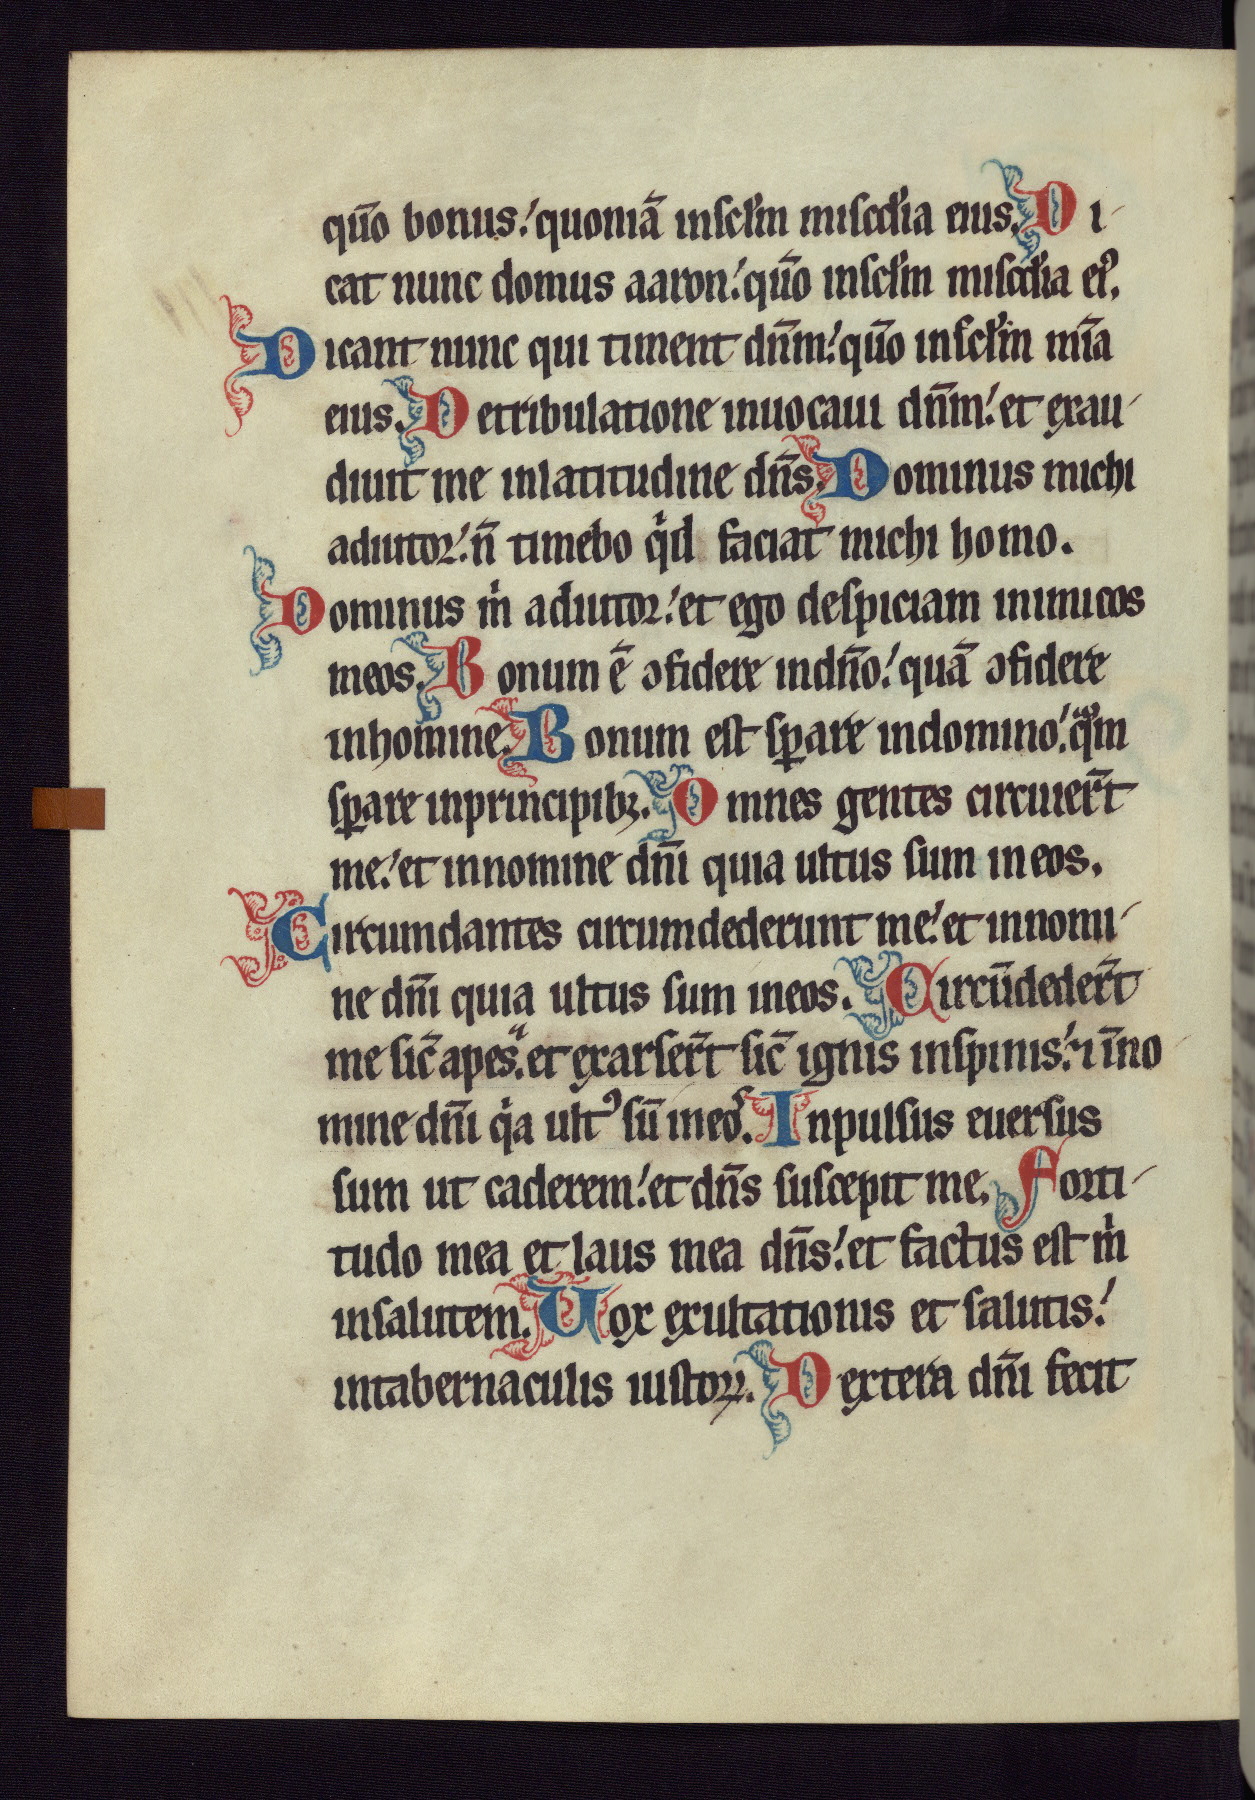 qūo bonus: quoniā inscl̄m miscdīa eius. Di-
cat nunc domus aaron: qūo inscl̄m miscdīa ei9.
Dicant nunc qui timent dn̄m: qūo inscl̄m mīa
eius. De tribulatione inuocaui dn̄m: et exau-
diuit me inlatitudine dn̄s. Dominus michi
adiutor: n̄ timebo qⁱd faciat michi homo.
Dominus mⁱ adiutor: et ego despiciam inimicos
meos. Bonum ē ↄfidere indn̄o: quā ↄfidere
inhomine. Bonum est sꝑare indomino: qᵃm
sꝑare inprincipibꝫ. Omnes gentes circuier̄t
me: et innomine dn̄i quia ultus sum ineos.
Circumdantes circumdederunt me: et innomi-
ne dn̄i quia ultus sum ineos. Circūdeder̄t
me sic̄ apes. et exarser̄t sic̄ ignis inspinis: ⁊ īno
mine dn̄i qⁱa ult9 sū ineos. Inpulsus euersus
sum ut caderem: et dn̄s suscepit me. Forti-
tudo mea et laus mea dn̄s: et factus est mⁱ
insalutem. Uox exultationis et salutis:
intabernaculis iustoꝝ. Dextera dn̄i fecit